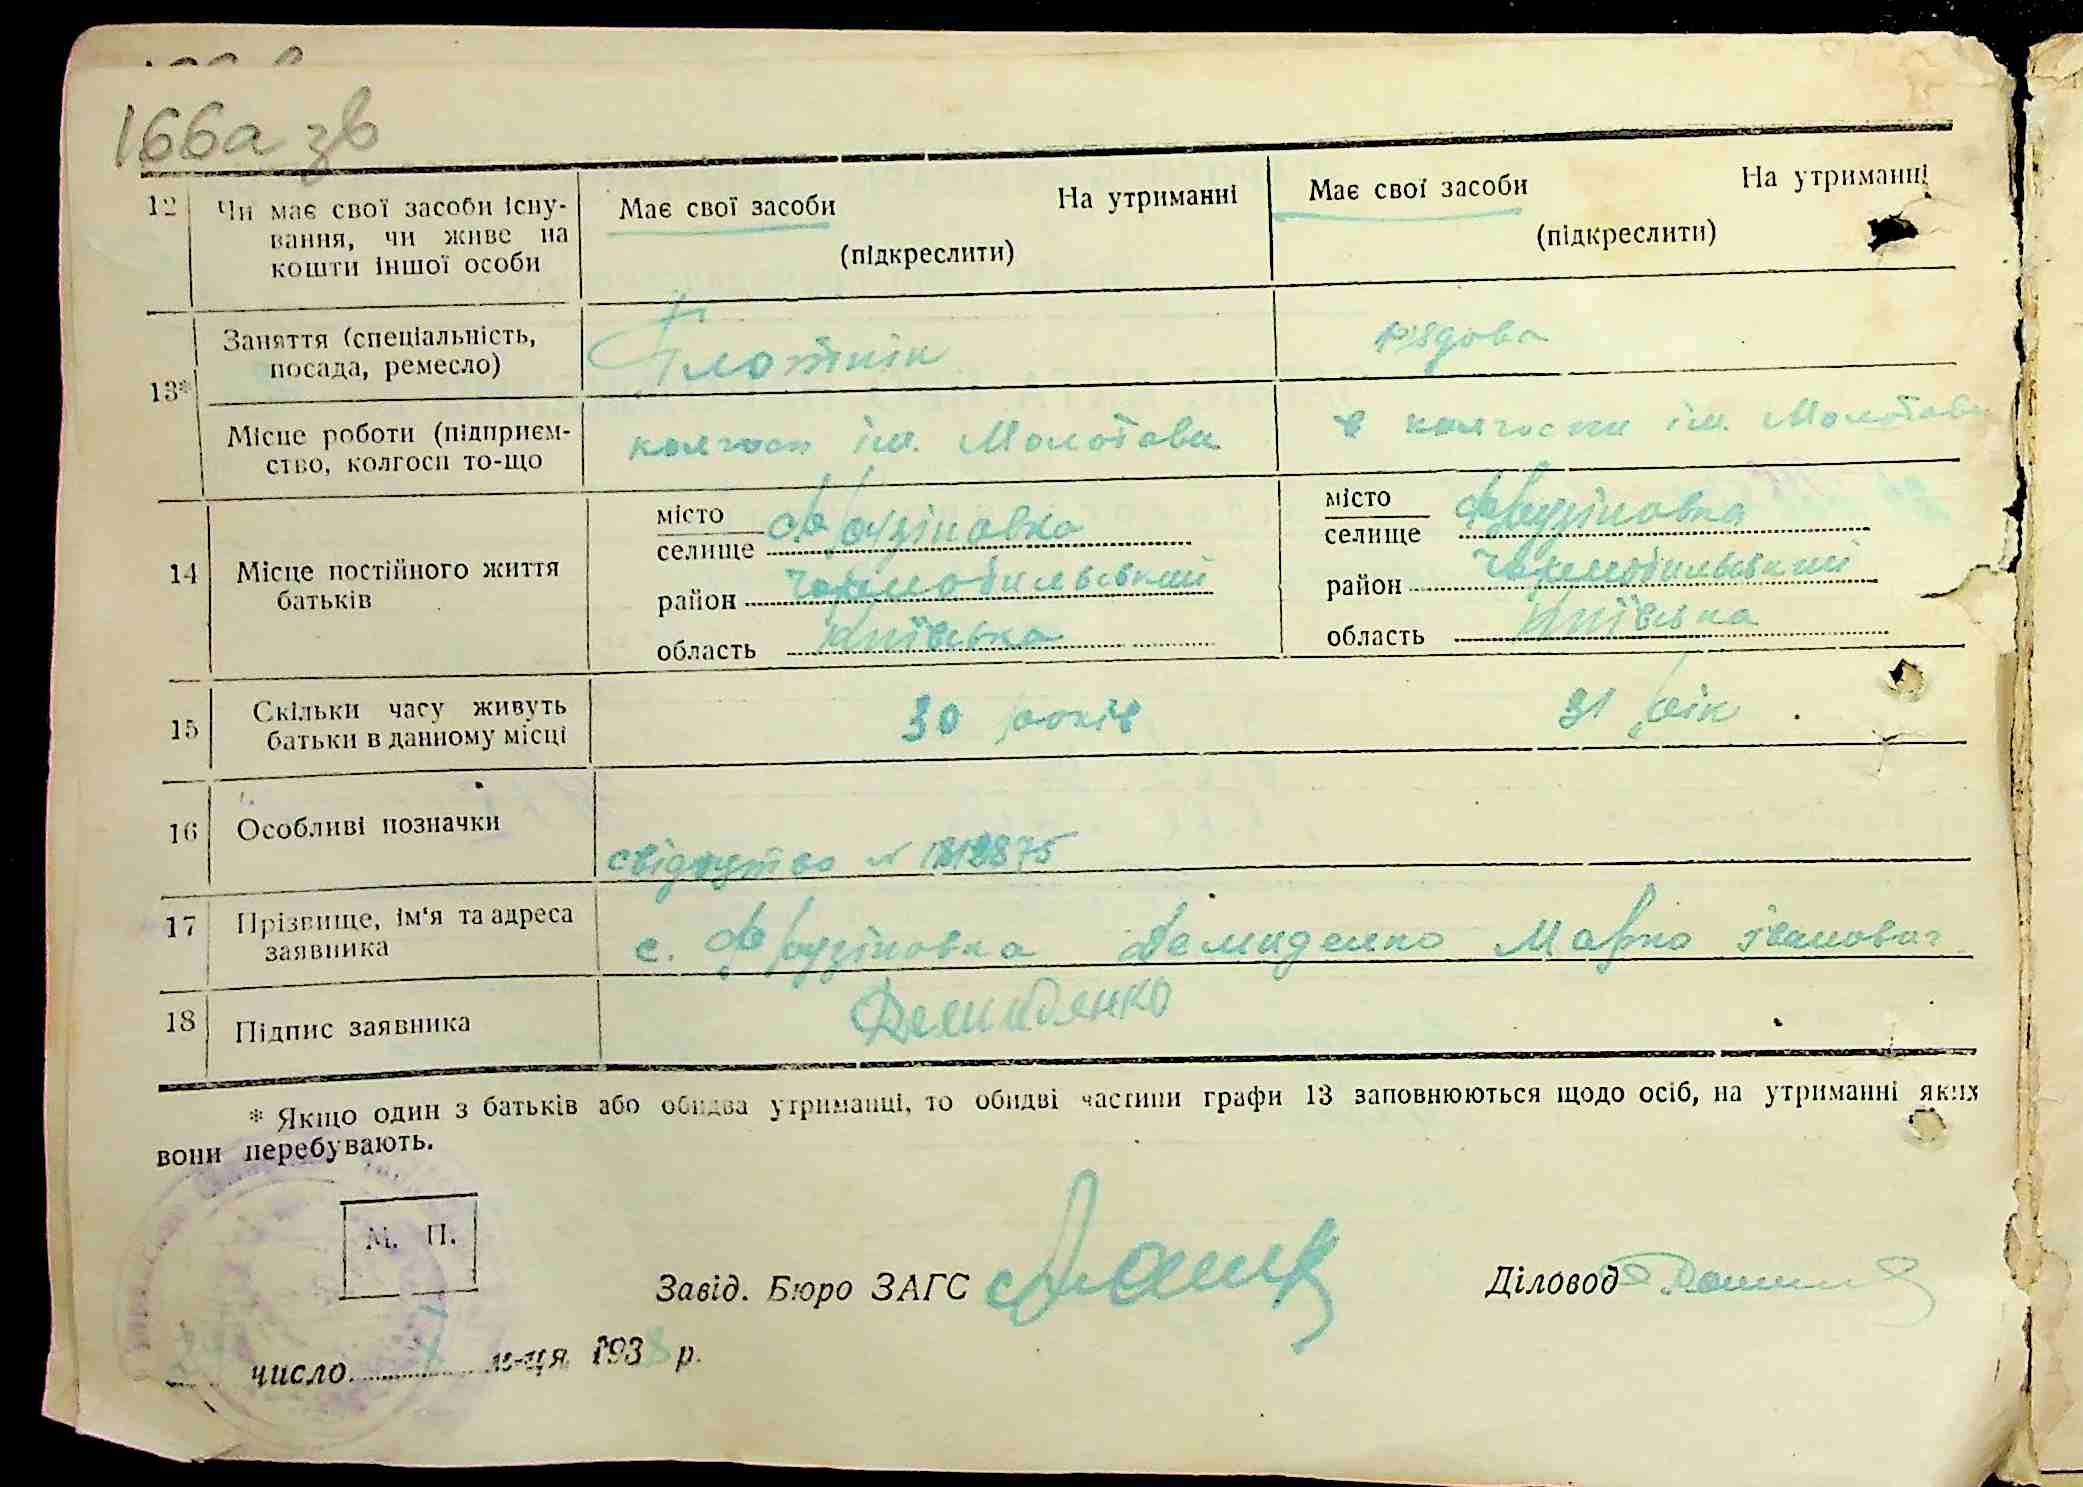 166а зв
12 Чи має свої засоби існу-
вання, чи живе на
кошти іншої особи
Має свої засоби На утриманні
(підкреслити)
Має свої засоби На утриманні
(підкреслити)
13*
Заняття (спеціальність,
посада, ремесло)
Плотнік
рядова
Місце роботи (підприєм-
ство, колгосп то-що
колгосп ім. Молотова
в колгоспи ім. Молотова
14 Місце постійного життя
батьків
місто
селище Фрузіновка
район Чорнобильський
область Київська
місто
селище Фрузіновка
район Чорнобильський
область Київська
15 Скільки часу живуть
батьки в данному місці
30 років
31 рік
16 Особливі позначки
свідоцтво №
17 Прізвище, ім'я та адреса
заявника
с. Фрузіновка Демиденко Марко Іванович
18 Підпис заявника
Демиденко
* Якщо один з батьків або обидва утриманці, то обидві частини графи 13 заповнюються щодо осіб, на утриманні яких
вони перебувають.
М. П.
Завід. Бюро ЗАГС
Діловод
число м-ця 1938 р.